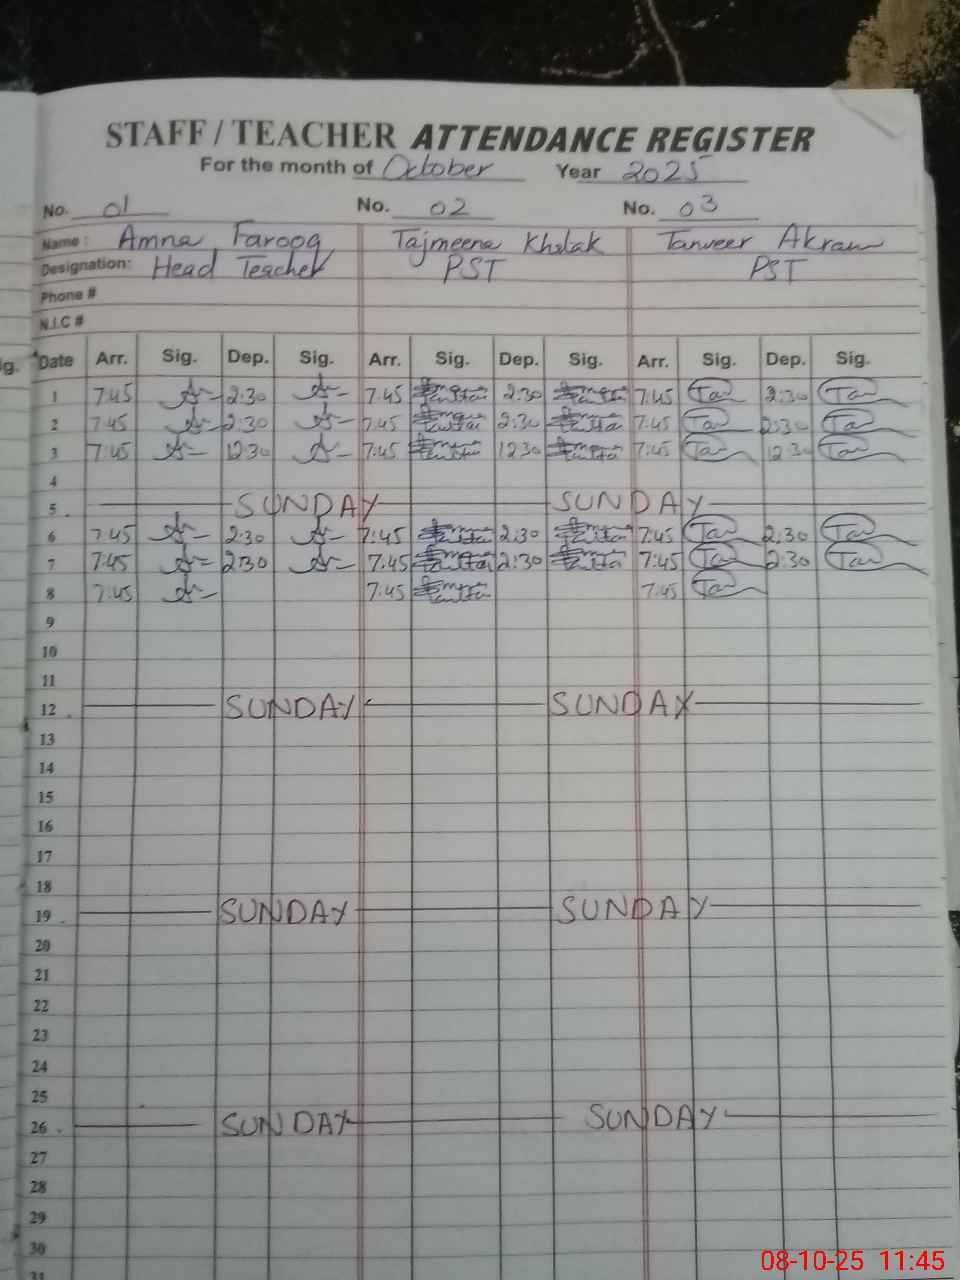 STAFF / TEACHER ATTENDANCE REGISTER
For the month of October Year 2025
No. 01 No. 02 No. 03
Name: Amna Farooq Tajmeena Khatak Tanveer Akram
Designation: Head Teacher PST PST
Phone #
N.I.C #
ig. Date Arr. Sig. Dep. Sig. Arr. Sig. Dep. Sig. Arr. Sig. Dep. Sig.
1 7:45 2:30 7:45 2:30 7:45 Tan 2:30 Tan
2 7:45 2:30 7:45 2:30 7:45 Tan 2:30 Tan
3 7:45 12:30 7:45 12:30 7:45 Tan 12:30 Tan
4
5 SUNDAY SUNDAY
6 7:45 2:30 7:45 2:30 7:45 Tan 2:30 Tan
7 7:45 2:30 7:45 2:30 7:45 Tan 2:30 Tan
8 7:45 7:45 7:45 Tan
9
10
11
12 SUNDAY SUNDAY
13
14
15
16
17
18
19 SUNDAY SUNDAY
20
21
22
23
24
25
26 SUNDAY SUNDAY
27
28
29
30
31
08-10-25 11:45